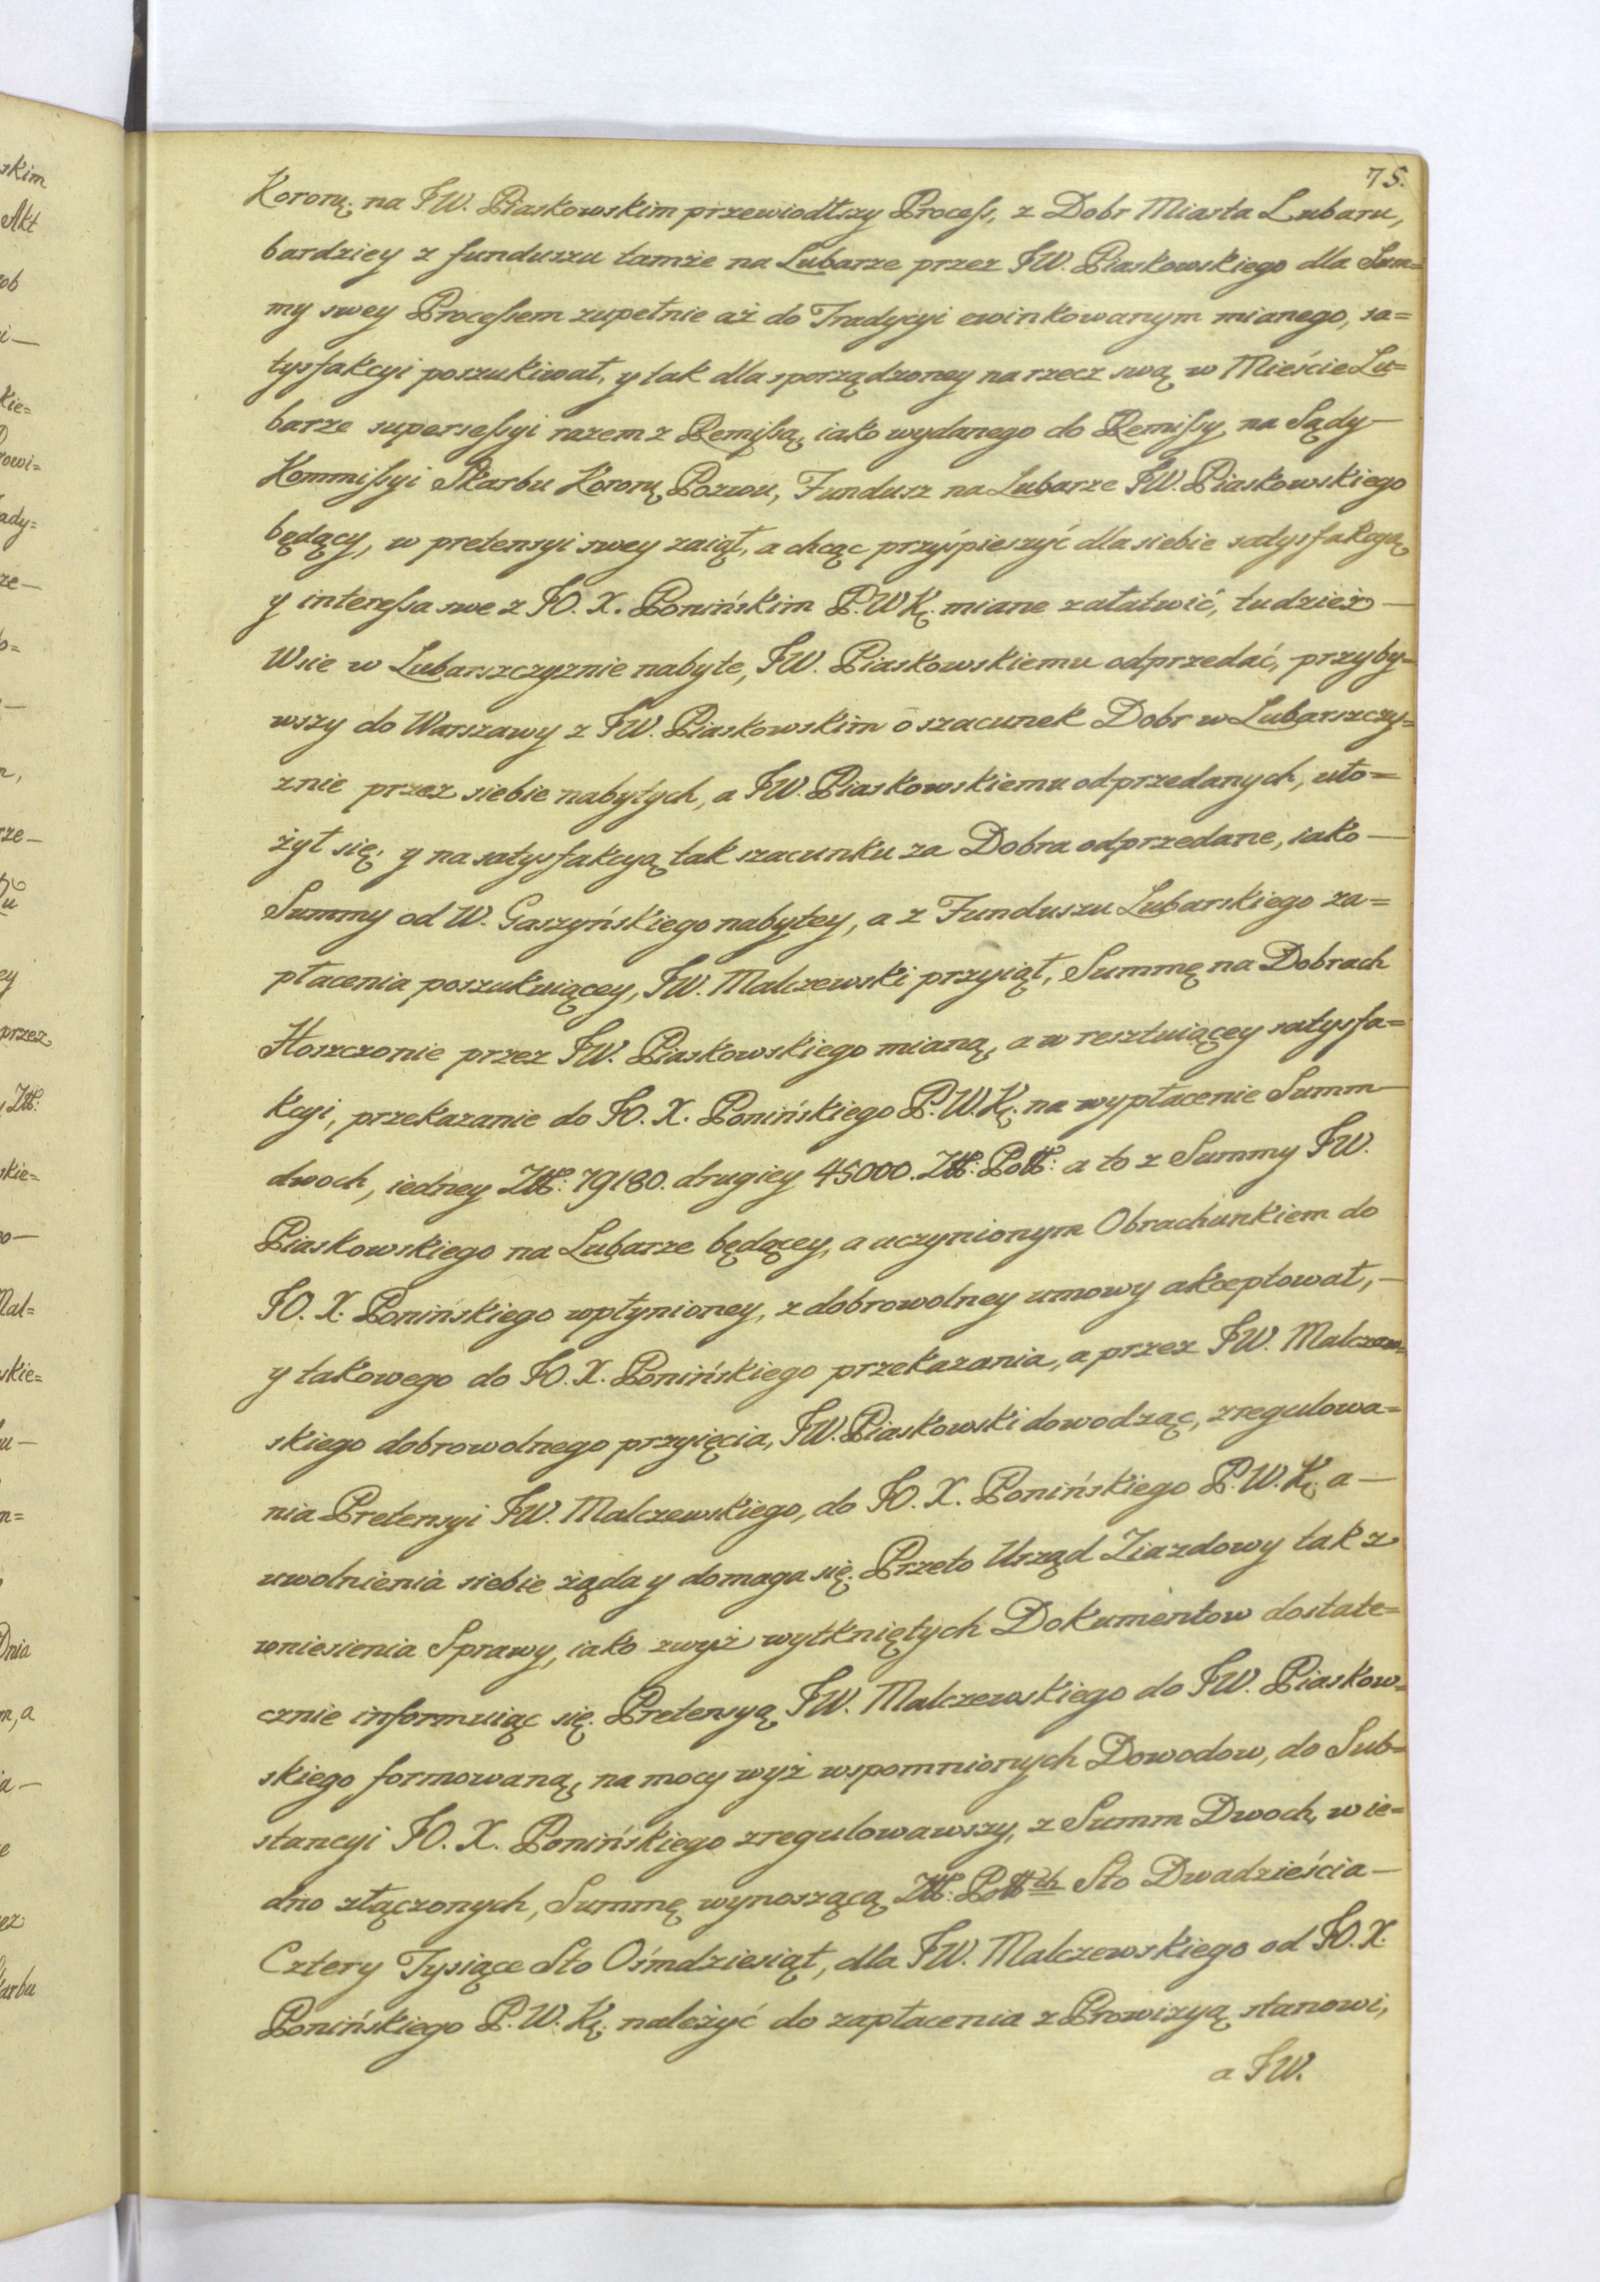 75.
Koronę. na JW. Piaskowskim przewiodłszy Process, z Dobr Miasta Lubaru,
bardziey z funduszu tamże na Lubarze przez JW. Piaskowskiego dla Sum=
my swey Processem zupełnie aż do Tradycyi ewinkowanym mianego, sa=
tysfakcyi poszukiwał, y tak dla sporządzoney na rzecz swą w Mieście Lu=
barze supersessyi razem z Remissą, iako wydanego do Remissy na Sądy—
Kommissyi Skarbu Koronę Pozwu, Fundusz na Lubarze JW. Piaskowskiego
będący, w pretensyi swey zaiął, a chcąc przyśpieszyć dla siebie satysfakcyą
y interessa swe z JO. X. Ponińskim P.WK. miane załatwić, tudzież—
Wsie w Lubarszczyznie nabyte, JW. Piaskowskiemu odprzedać, przyby=
wszy do Warszawy z JW. Piaskowskim o szacunek Dobr w Lubarszczy=
znie przez siebie nabytych, a JW. Piaskowskiemu odprzedanych, uło=
żył się, y na satysfakcyą tak szacunku za Dobra odprzedane, iako—
Summy od W. Gaszyńskiego nabytey, a z Funduszu Lubarskiego za=
płacenia poszukuiącey, JW. Malczewski przyiął, Summę na Dobrach
Hoszczonie przez JW. Piaskowskiego mianą, a w resztuiącey satysfa=
kcyi, przekazanie do JO. X. Ponińskiego P.W.K. na wypłacenie Summ—
dwoch, iedney Złł: 79180. drugiey 45000. Złł: Poll: a to z Summy JW.
Piaskowskiego na Lubarze będącey, a uczynionym Obrachunkiem do
JO. X. Ponińskiego wpłynioney, z dobrowolney umowy akceptował,—
y takowego do JO. X. Ponińskiego przekazania, a przez JW. Malczew=
skiego dobrowolnego przyięcia, JW. Piaskowski dowodząc, zregulowa=
nia Pretensyi JW. Malczewskiego, do JO. X. Ponińskiego P.W.K. a—
uwolnienia siebie żąda y domaga się. Przeto Urząd Ziazdowy tak z
wniesienia Sprawy, iako zwyż wytkniętych Dokumentow dostate=
cznie informuiąc się. Pretensyą JW. Malczewskiego do JW. Piaskow=
skiego formowaną, na mocy wyż wspomnionych Dowodow, do Sub=
stancyi JO. X. Ponińskiego zregulowawszy, z Summ Dwoch, w ie=
dno złączonych, Summę wynoszącą Złł: Pollch Sto Dwadzieścia—
Cztery Tysiące Sto Ośmdziesiąt, dla JW. Malczewskiego od JO. X.
Ponińskiego P.W.K. należyć do zapłacenia z Prowizyą stanowi,
a JW.